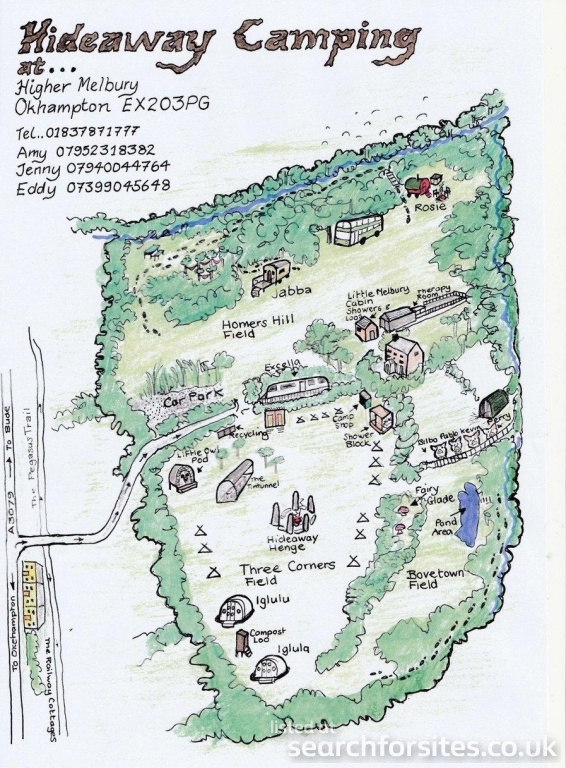 Hideaway Camping
at...
Higher Melbury
Okhampton EX203PG
Tel..01837871777
Amy 07952318382
Jenny 07940044764
Eddy 07399045648
Rosie
Jabba
Little Melbury
Cabin
Showers &
Loo
Therapy
Room
Homers Hill
Field
Excella
Car Park
Recycling
Camp
Shop
Shower
Block
Little Owl
Pod
The
Tintunnel
Bilbo Pabb Kevin
Fairy
Glade
Pond
Area
Hideaway
Henge
Three Corners
Field
Bovetown
Field
Iglulu
Compost
Loo
Iglula
A3079 → To Bude
The Pegasus Trail
To Okehampton
The Railway Cottages
listed at
searchforsites.co.uk